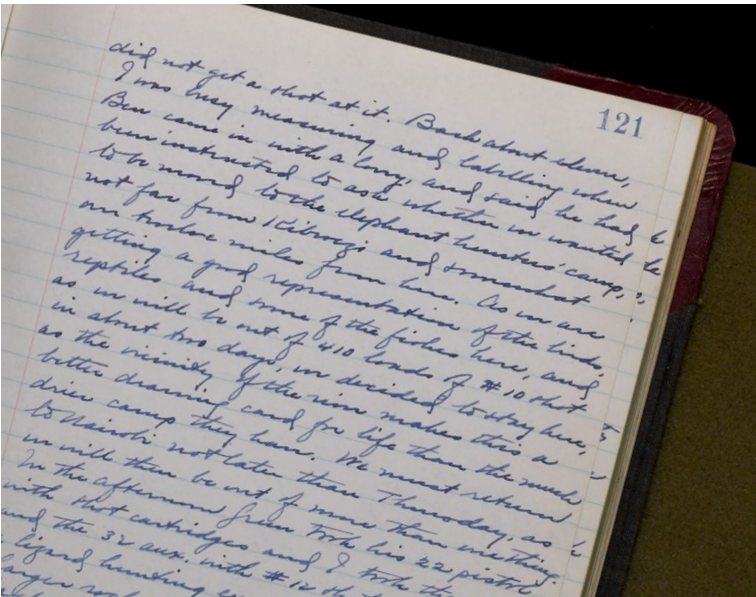 121
did not get a shot at it. Back about eleven,
I was busy measuring and labelling when
Ben came in with a lorry, and said he had
been instructed to ask whether we wanted
to be moved to the elephant hunters' camp,
not far from Kibwezi and somewhat
twelve miles from here. As we are
getting a good representation of the birds,
reptiles and some of the fishes here, and
as we will be out of 410 loads of #10 shot
in about two days, we decided to stay here,
as the vicinity of the river makes this a
better drawing card for life than the much
drier camp they have. We must return
to Nairobi not later than Thursday, as
we will then be out of more than one thing.
In the afternoon Green took his 22 pistol
with shot cartridges and I took the
and the 32 aux. with #12
lizard hunting